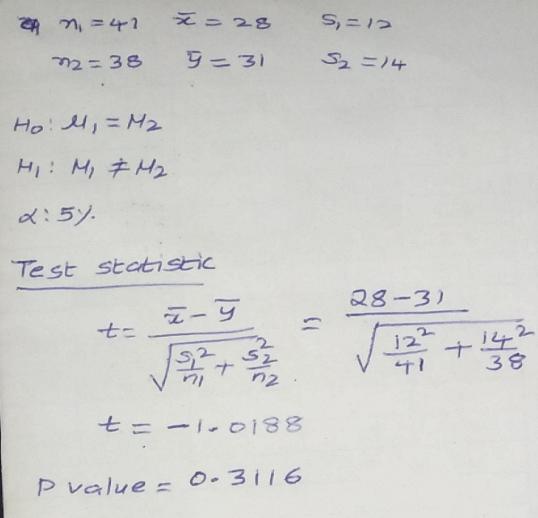 n₁ = 41 x̄ = 28 S₁ = 12
n2 = 38 ȳ = 31 S2 = 14
H₀: μ₁ = μ2
H₁: μ₁ ≠ μ2
α: 5%
Test statistic
t = (x̄ - ȳ) / √(S₁²/n₁ + S2²/n2) = (28 - 31) / √(12²/41 + 14²/38)
t = -1.0188
P value = 0.3116